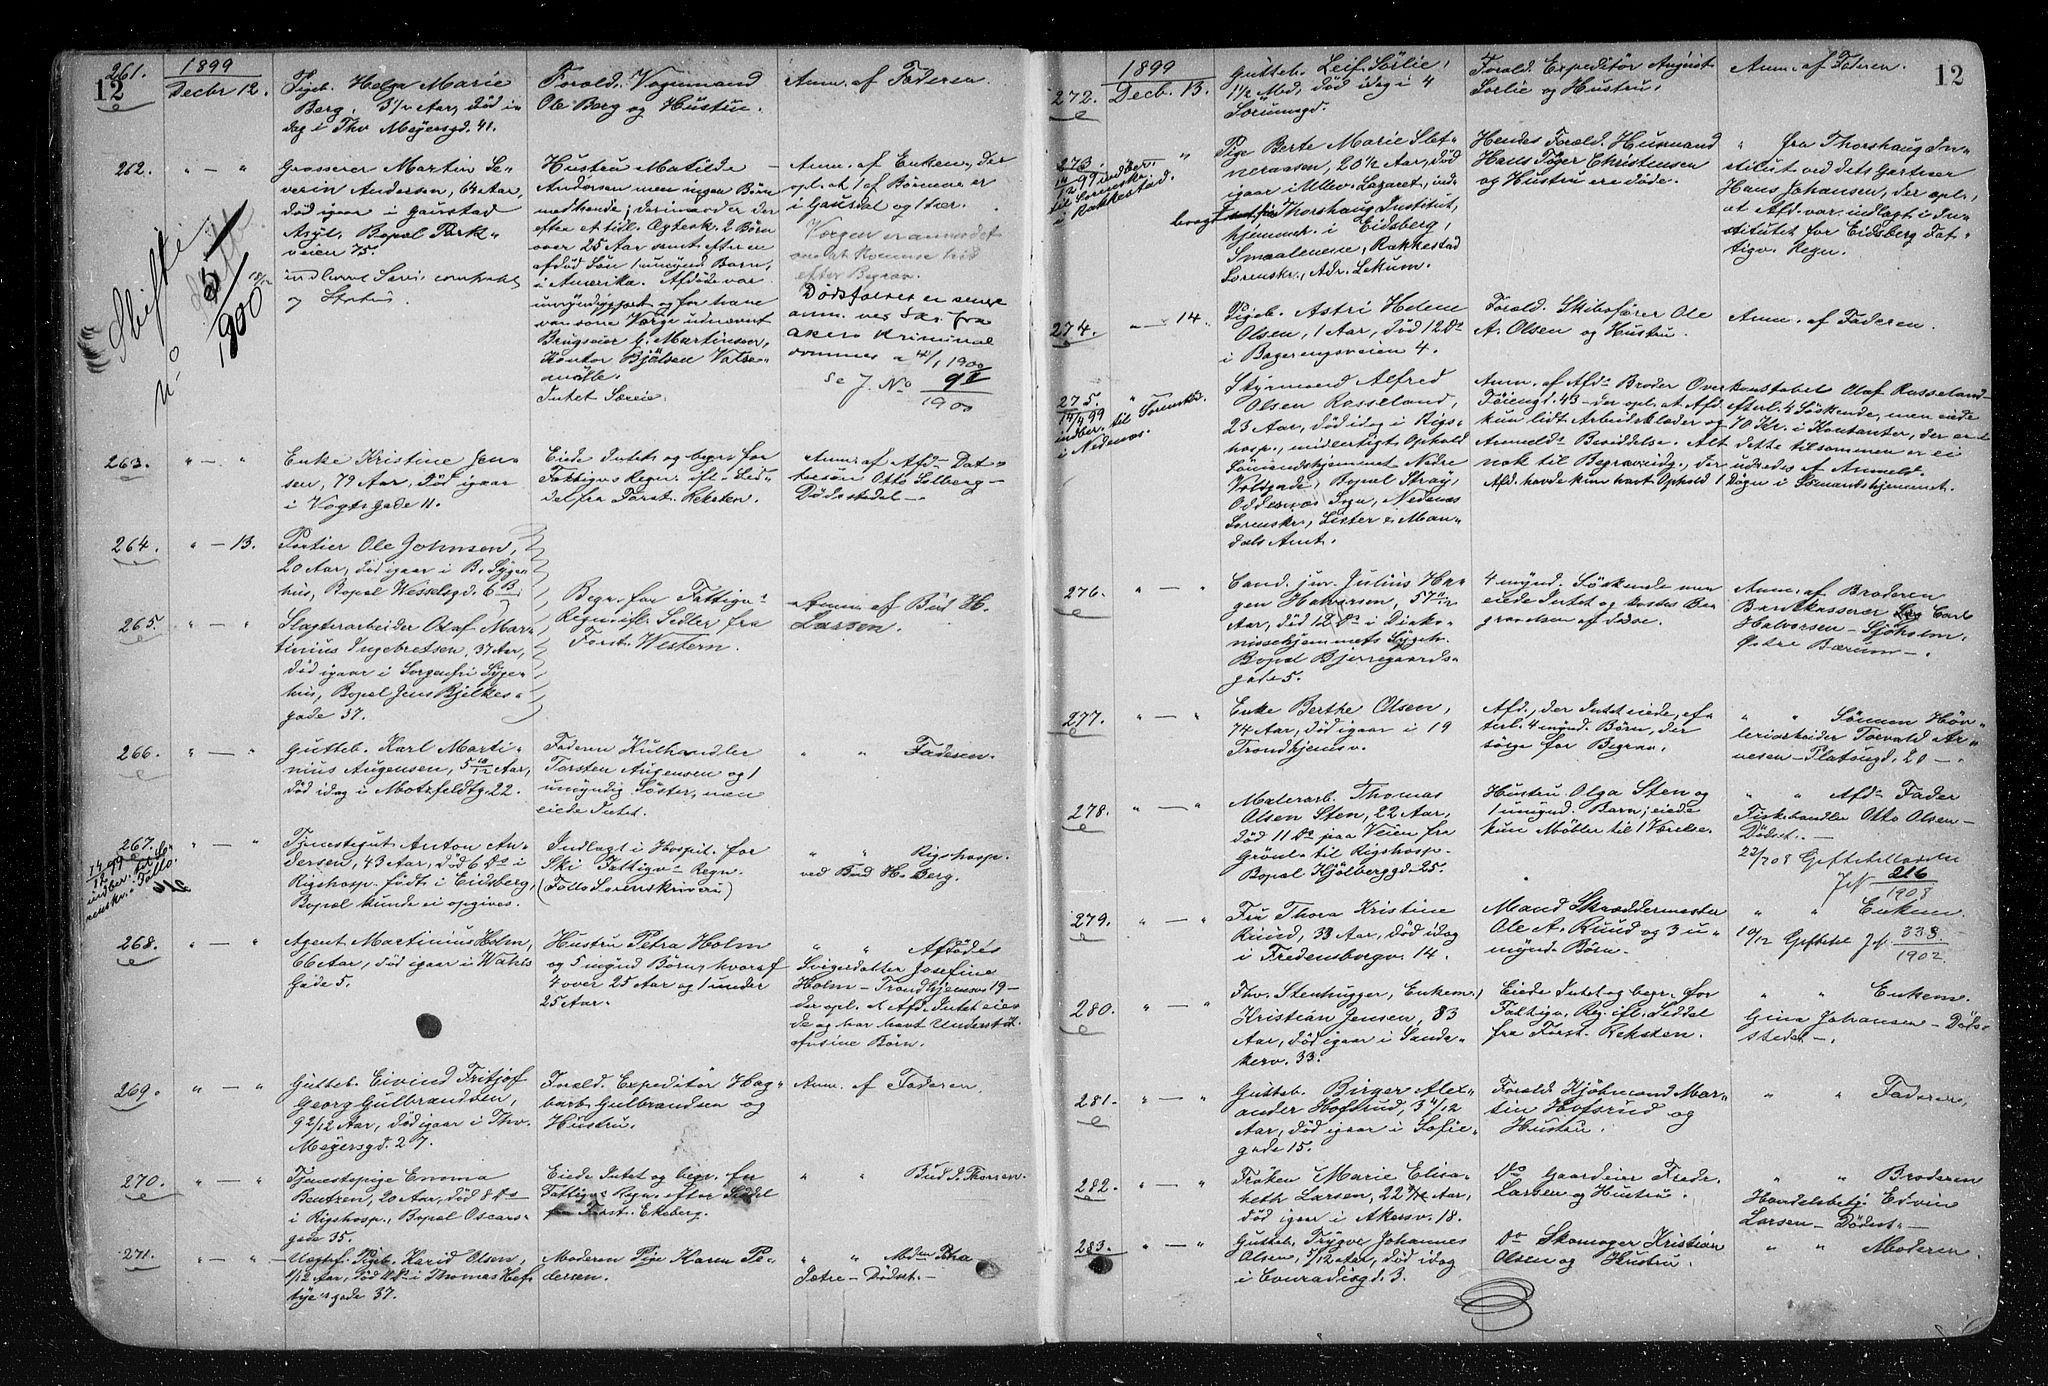 261.
12
1899
Decbr 12.
Pigeb. Helga Marie
Berg, 3 1/2 Aar, død i
dag i Thv Meyersgd. 41.
Foræld. Vognmand
Ole Berg og Hustru.
Anm. af Faderen.
262.
" — "
Grosserer Martin Se-
verin Andersen, 64 Aar,
død igaar i Gaustad
Asyl. Bopæl Park-
veien 75.
Hustru Matilde
Andersen men ingen Børn
med hende; derimod er der
efter et tidl. Ægtesk. 2 Børn
over 25 Aar samt efter en
afdød Søn 1 umynd. Barn,
i Amerika. Afdøde var
umyndiggjort og for ham
var som Værge udnævnt
Brugseier G. Martinsen,
Kontor Bjølsen Valse-
mølle.
Intet Særeie.
Anm. af Enken, der
opl. at 1 af Børnene er
i Gausdal og 1 her.
Værgen er anmodet
om at komme hid
efter Begrav.
Dødsfaldet er senere
anm. ved Skr. fra
Akers Kriminal
dommer
1900
Se J. No
1900
Skifte
No
1900
263.
" — "
Enke Kristine Jen-
sen, 79 Aar, død igaar
i Vogts gade 11.
Eiede Intet og begr. for
Fattigv. Regn. ifl. Sed-
del fra Forst. Reksten.
Anm. af Afd. Dat-
tersøn Otto Solberg —
Dødsstedet —.
264.
" — 13.
Portier Ole Johnsen,
20 Aar, død igaar i B. Syge-
hus, Bopæl Wesselsgd. 6 B
Begr. for Fattigv.
Regn. ifl. Sedler fra
Forst. Western.
Anm. af Bud H.
Larsen.
265.
" — "
Slagterarbeider Olaf Mar-
tinius Ingebretsen, 37 Aar,
død igaar i Sorgenfri Syge-
hus, Bopæl Jens Bjelkes-
gade 37.
266.
" — "
Gutteb. Karl Marti-
nius Augensen, 5 10/12 Aar,
død idag i Motzfeldtg. 22.
Faderen Kulhandler
Torsten Augensen og 1
umyndig Søster, men
eiede Intet.
" " Faderen.
267.
" — "
Tjenestegut Anton An-
dersen, 43 Aar, død 6 ds i
Rigshosp. født i Eidsberg,
Bopæl kunde ei opgives.
Indlagt i Hospit. for
Ski Fattigv. Regn.
(Follo Sorenskriveri)
" " Rigshosp.
ved Bud H. Berg.
268.
" — "
Agent Martinius Holm,
66 Aar, død igaar i Wahls
Gade 5.
Hustru Petra Holm
og 5 mynd Børn, hvoraf
4 over 25 Aar og 1 under
25 Aar.
" " Afdødes
Svigerdatter Josefine
Holm — Trondhjemsv. 19 —
der opl. at Afd. Intet eie-
de og har havt Understøt.
af sine Børn.
269.
" — "
Gutteb. Eivind Fritjof
Georg Gulbrandsen,
9 2/12 Aar, død igaar i Thv.
Meyersgd. 27.
Foræld. Expeditør Hag-
barth Gulbrandsen og
Hustru.
Anm. af Faderen.
270.
" — "
Tjenestepige Emma
Bentzen, 20 Aar, død 8 ds
i Rigshosp., Bopæl Oscars-
gade 35.
Eiede Intet og begr. for
Fattigv. Regn. efter Seddel
fra Forst. Ekeberg.
" " Bud P. Thorsen.
271.
" — "
Uægtef. Pigeb. Harid Olsen,
1/12 Aar, død 11 ds i Thomas Hef-
tyes gade 37.
Moderen Pige Karen Pe-
dersen.
" "
Petre — Dødsst. —
12
1899
272.
Decb. 13.
Gutteb. Leif Sørlie,
1 1/2 Md, død idag i 4
Sørumsgd.
Foræld. Expeditør August
Sørlie og Hustru.
Anm. af Faderen.
273.
"
indber.
til Sorenskr.
i Rakkestad.
Pige Berte Marie Slet-
neraasen, 20 1/2 Aar, død
igaar i Mlev. Lazaret, ind-
bragt fra Thorshaug Institut,
hjemmeh. i Eidsberg,
Smaalenene, Rakkestad
Sorenskr., Adr. Lekum.
Hendes Foræld. Husmand
Hans Inger Christensen
og Hustru ere døde.
" fra Thorshaug In-
stitut ved dets Gartner
Hans Johansen, der opl.
at Afd. var indlagt i In-
stitutet for Eidsberg Fat-
tigv. Regn.
274.
" — 14.
Pigeb. Astri Helene
Olsen, 1 Aar, død 12 ds
i Bagerengsveien 4.
Foræld. Skibsfører Ole
A. Olsen og Hustru.
Anm. af Faderen.
275.
"
indber. til Sorenskr.
i Nedenæs.
Styrmand Alfred
Olsen Rasseland,
23 Aar, død idag i Rigs-
hosp., midlertidigt Ophold
Sømandshjemmet Nedre
Voldgade, Bopæl Straj,
Oddernæs Sogn, Nedenæs
Sorenskr., Lister & Man-
dals Amt.
Anm. af Afd. Broder Overkonstabel Olaf Rasseland —
Tøiengd. 43 — der opl. at Afd. efterl. 4 Søskende, men eiede
kun lidt Arbeidsklæder og 70 Kr. i Kontanter, der er i
Anmeldts Besiddelse. Alt dette tilsammen er ei
nok til Begravelsdg., der udredes af Anmeld.
Afd. havde kun havt Ophold 1 Døgn i Sømandshjemmet.
276.
" — "
Cand. jur. Julius Ha-
gen Halvorsen, 57
Aar, død 12 ds i Diako-
nissehjemmets Sygeh.
Bopæl Bjerregaards-
gade 5.
4 mynd. Søskende men
eiede Intet og kostes Be-
gravelsen af disse.
Anm. af Broderen
Bankkasserer Carl
Halvorsen — Sjøholm.
Østre Bærum —.
277.
" — "
Enke Berthe Olsen,
74 Aar, død igaar i 19
Trondhjemsv.
Afd., der Intet eiede, ef-
terl. 4 mynd. Børn, der
sørge for Begrav.
" " Sønnen Høv-
leriarbeider Torvald Ar-
nesen — Platougd. 20 —.
278.
" — "
Malerarb. Thomas
Olsen Sten, 22 Aar,
død 11 ds paa Veien fra
Grønl. til Rigshosp.
Bopæl Hjølberggd. 25.
Hustru Olga Sten og
1 umynd. Barn; eiede
kun Møbler til 1 Værelse.
" " Afd. Fader
Fiskehandler Otto Olsen —
Dødsst. —.
Giftetilladelse
JN 216
1908
279.
" — "
Fru Thora Kristine
Ruud, 33 Aar, død idag
i Fredensborgv. 14.
Mand Skræddermester
Ole A. Ruud og 3 u-
mynd. Børn.
" " Enkem.
10/12 Giftetil JN 333.
1902
280.
" — "
Fhv. Stenhugger, Enkem.
Kristian Jensen, 83
Aar, død igaar i Sanda-
kerv. 33.
Eiede Intet og begr. for
Fattigv. Reg. ifl. Seddel
fra Forst. Reksten.
" " Enkem.
Gina Johansen — Døds-
stedet —.
281.
" — "
Gutteb. Birger Alex-
ander Hofsrud, 3 11/12
Aar, død igaar i Sofie-
gade 15.
Foræld. Kjøbmand Mar-
tin Hofsrud og
Hustru.
" " Faderen.
282.
" — "
Frøken Marie Elisa-
beth Larsen, 22 Aar,
død igaar i Akersv. 18.
Do Gaardeier Frede-
Larsen og Hustru.
" " Broderen
Handelsbetj. Edvin
Larsen — Dødsst. —
283.
" — "
Gutteb. Trygve Johannes
Olsen, 5/12 Aar, død idag
i Conradisgd. 3.
Do Skomager Kristian
Olsen og Hustru.
" " Moderen.